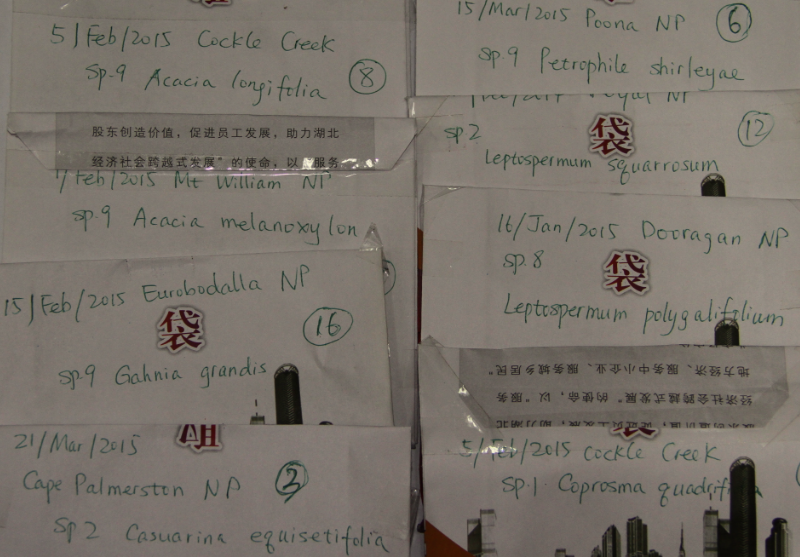 5/Feb/2015 Cockle Creek
sp.9 Acacia longifolia
8
股东创造价值，促进员工发展，助力湖北
经济社会跨越式发展"的使命，以"服务
Feb/2015 Mt William NP
sp.9 Acacia melanoxylon
15/Feb/2015 Eurobodalla NP
16
袋
sp.9 Gahnia grandis
21/Mar/2015
Cape Palmerston NP
2
sp 2 Casuarina equisetifolia
15/Mar/2015 Poona NP
6
sp.9 Petrophile shirleyae
NP
sp 2
袋
12
Leptospermum squarrosum
16/Jan/2015 Dooragan NP
sp.8
袋
Leptospermum polygalifolium
地方经济、服务中小企业、服务城乡居民"
经济社会跨越式发展"的使命，以"服务
5/Feb/2015 Cockle Creek
sp.1 Coprosma